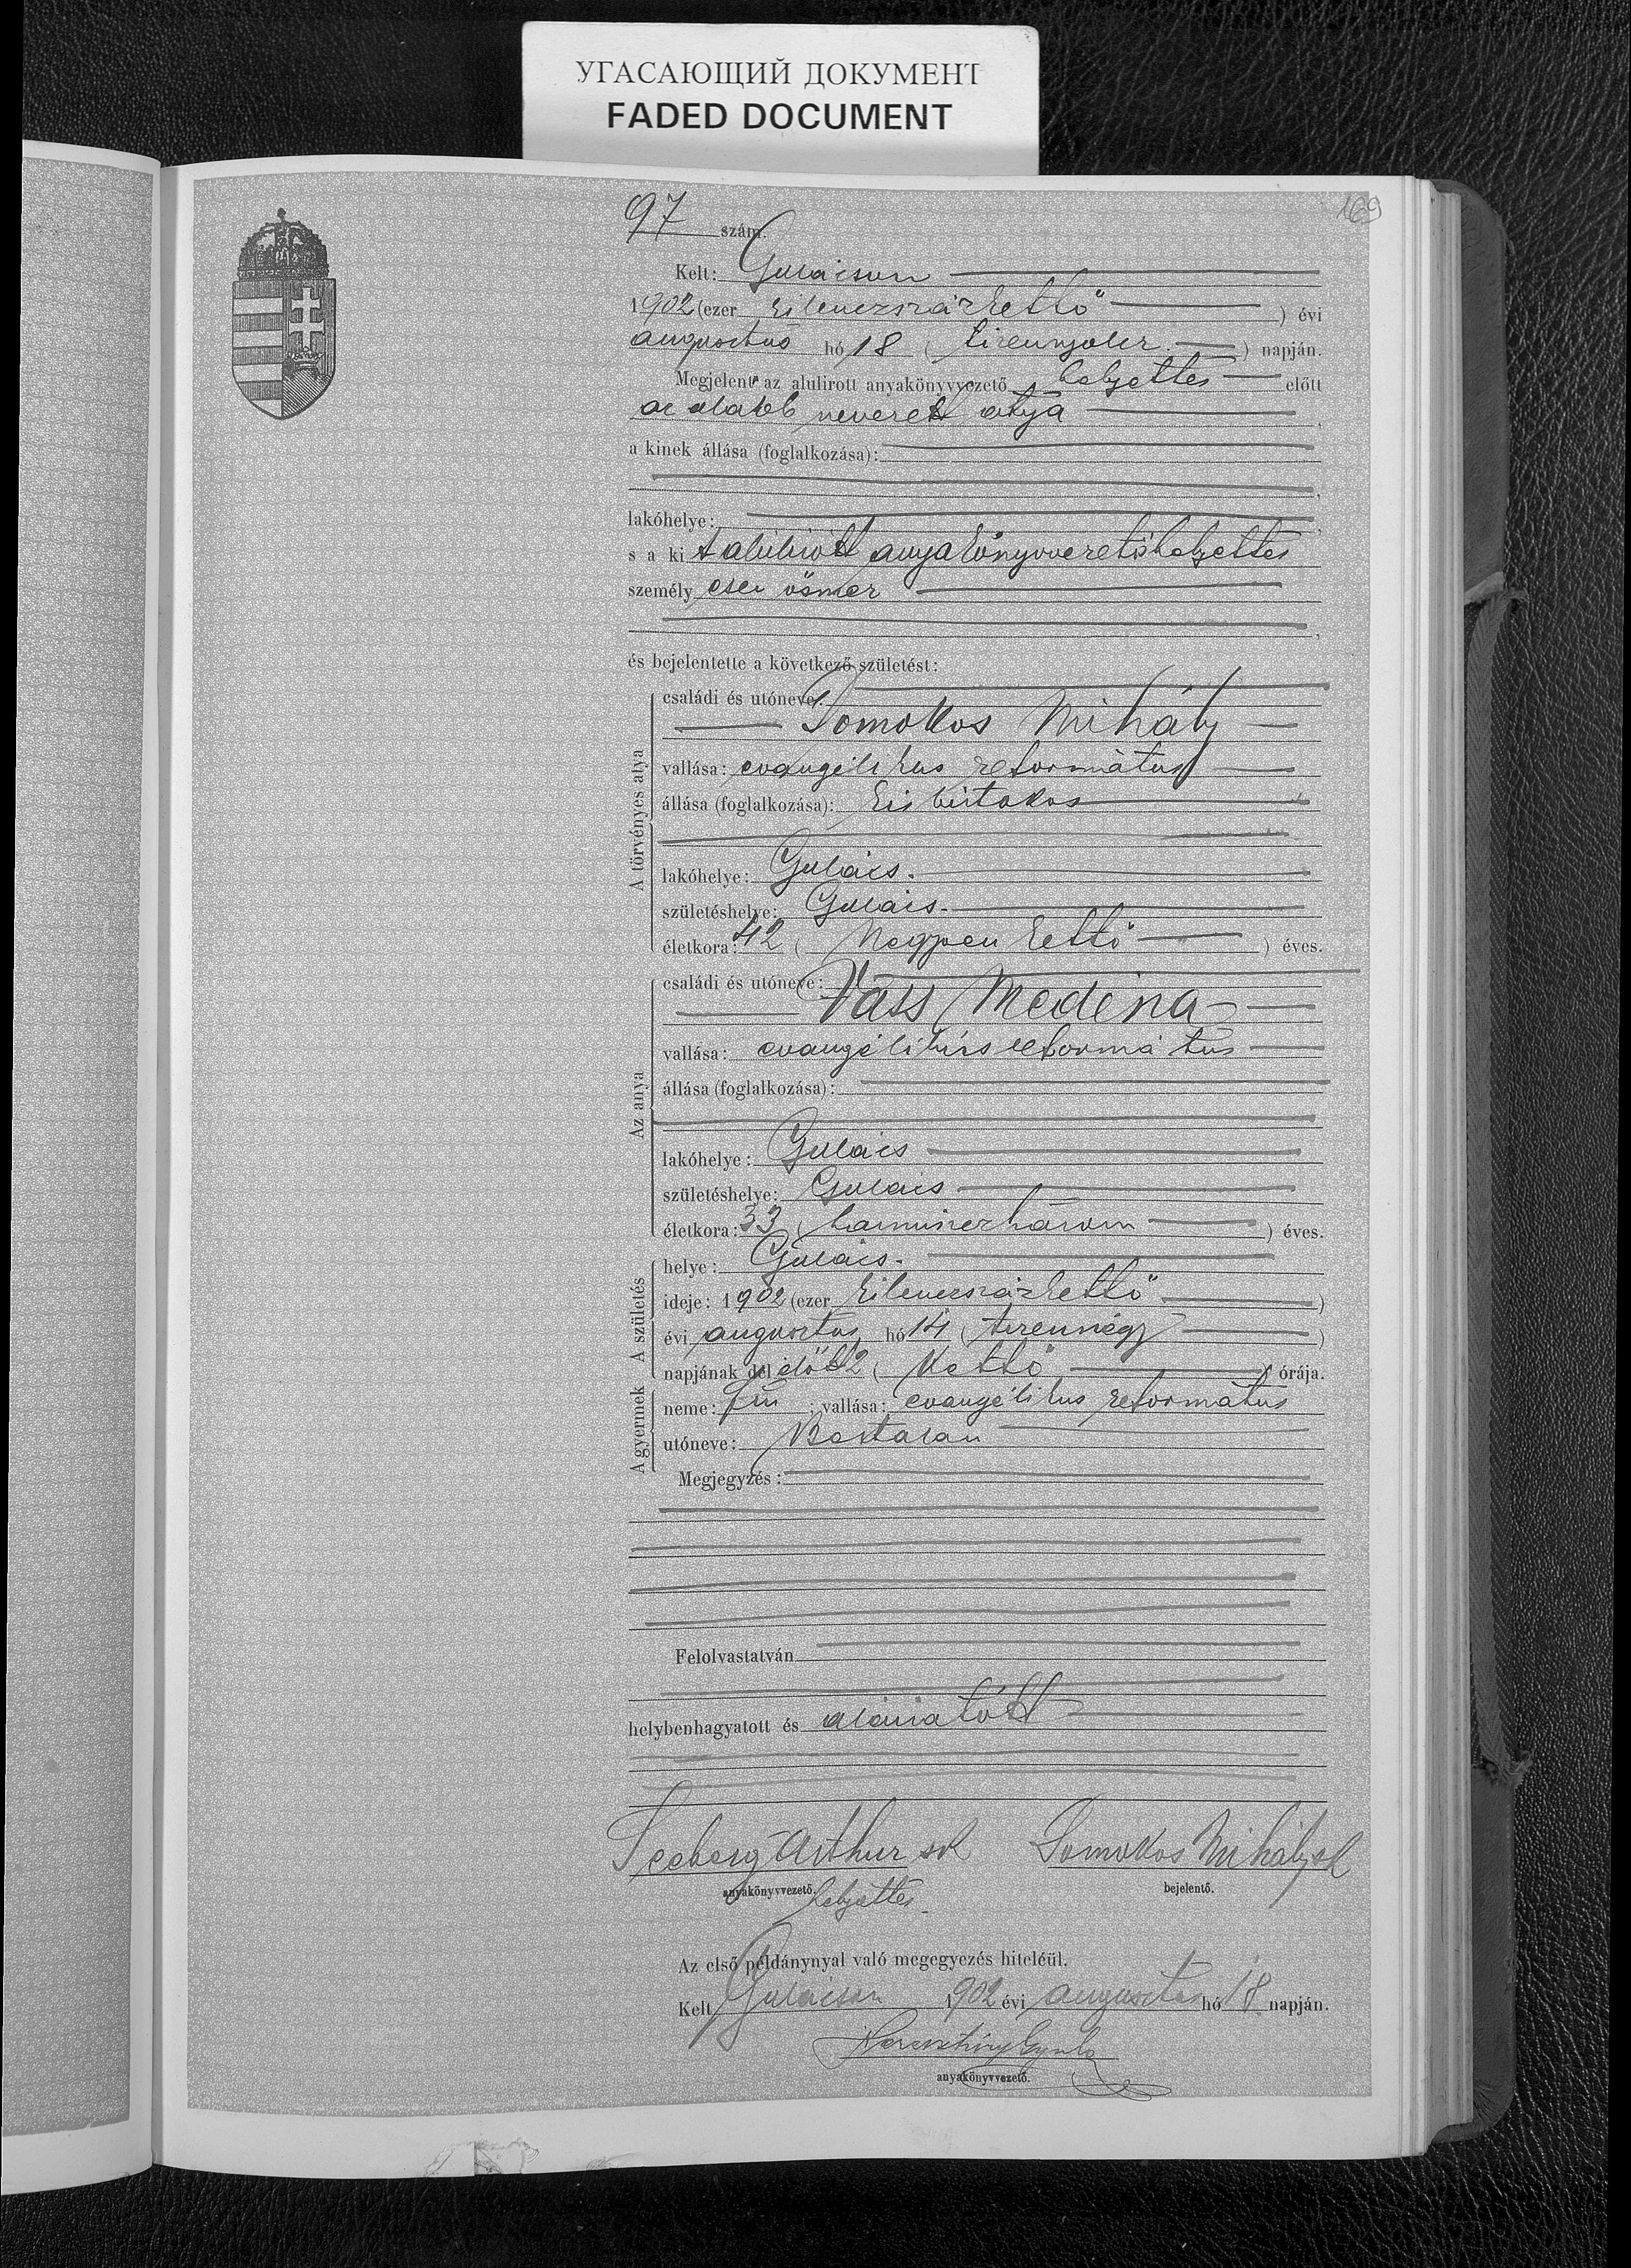 УГАСАЮЩИЙ ДОКУМЕНТ
FADED DOCUMENT
169
97 szám.
Kelt: Gulácson
1902 (ezer kilenczszázkettő) évi
augusztus hó 18 (tizennyolcz) napján.
Megjelent az alulirott anyakönyvvezető helyettes előtt
az alább nevezett atya,
a kinek állása (foglalkozása):
lakóhelye:
s a ki t alulirott anyakönyvvezetőhelyettes
személyesen ösmer
és bejelentette a következő születést:
A törvényes atya
családi és utóneve:
Somokos Mihály
vallása: evangélikus református
állása (foglalkozása): kisbirtokos
lakóhelye: Gulács.
születéshelye: Gulács.
életkora: 42 (Negyvenkettő) éves.
Az anya
családi és utóneve:
Vass Medina
vallása: evangélikus református
állása (foglalkozása):
lakóhelye: Gulács
születéshelye: Gulács
életkora: 33 (harminczhárom) éves.
A születés
helye: Gulács.
ideje: 1902 (ezer kilenczszázkettő)
évi augusztus hó 14 (tizennégy)
napjának dél előtt 2 (Kettő) órája.
A gyermek
neme: fiú; vallása: evangélikus református
utóneve: Bertalan
Megjegyzés:
Felolvastatván
helybenhagyatott és aláiratott
Arthur sk Somokos Mihály sk
anyakönyvvezető. bejelentő.
helyettes
Az első példánynyal való megegyezés hiteléül.
Kelt Gulácson 1902 évi augusztus hó 18 napján.
Gyula
anyakönyvvezető.